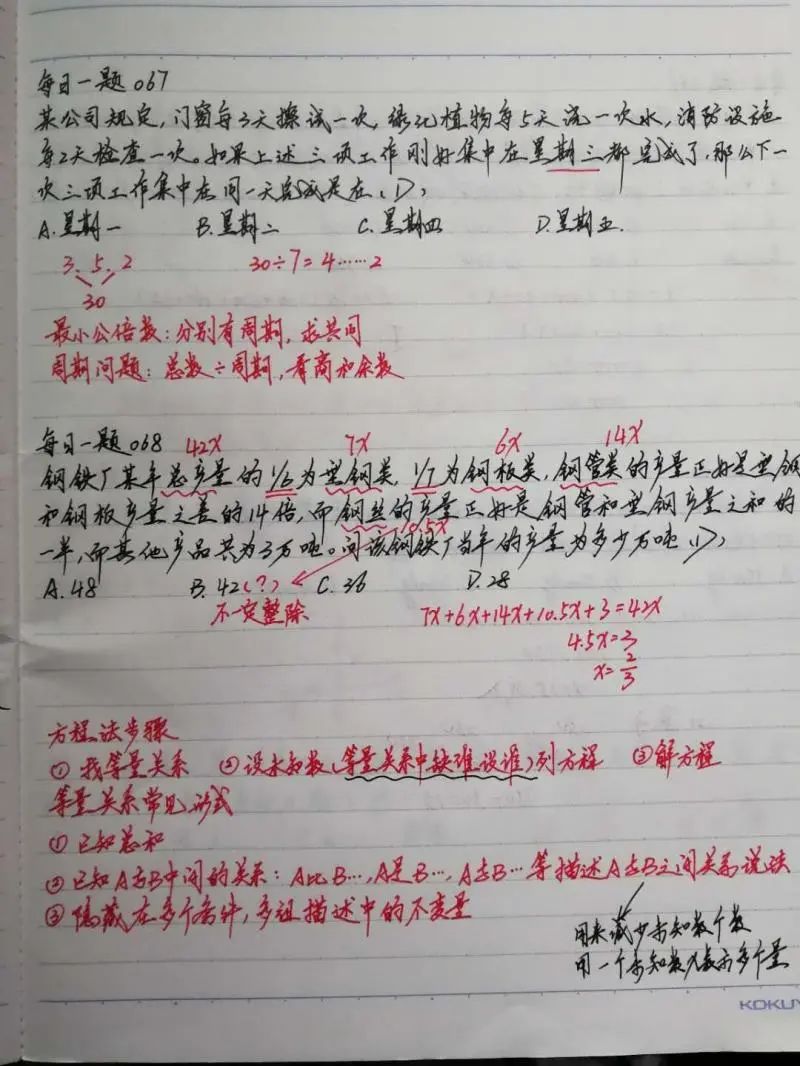 每日一题 067
某公司规定,门窗每3天擦试一次,绿化植物每5天浇一次水,消防设施
每2天检查一次。如果上述三项工作刚好集中在星期三都完成了,那么下一
次三项工作集中在同一天完成是在(D)
A.星期一 B.星期二 C.星期四 D.星期五.
3、5、2 30÷7=4……2
30
最小公倍数:分别有周期,求共同
周期问题:总数÷周期,看商和余数
每日一题 068 42x 7x 6x 14x
钢铁厂某年总产量的1/6为型钢类,1/7为钢板类,钢管类的产量正好是型钢
和钢板产量之差的14倍,而钢丝的产量正好是钢管和型钢产量之和的
10.5x
一半,而其他产品共为3万吨。问该钢铁厂当年的产量为多少万吨(D)
A.48 B.42(?) C.36 D.28
不一定整除 7x+6x+14x+10.5x+3=42x
4.5x=3
x=2/3
方程法步骤
① 找等量关系 ②设未知数(等量关系中缺谁设谁)列方程 ③解方程
等量关系常见形式
① 已知总和
② 已知A与B中间的关系:A比B…,A是B…,A与B…等描述A与B之间关系说法
③ 隐藏在多个条件,多组描述中的不变量
用来减少未知数个数
用一个未知数表示多个量
KOKUY